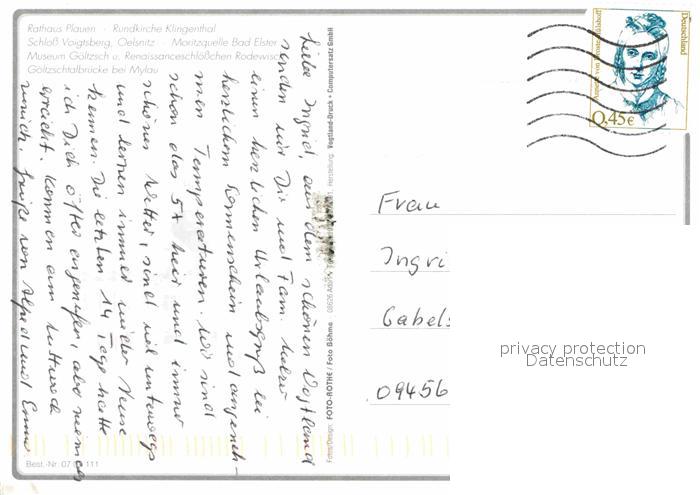 Rathaus Plauen · Rundkirche Klingenthal
Schloß Voigtsberg, Oelsnitz · Moritzquelle Bad Elster
Museum Göltzsch u. Renaissanceschlößchen Rodewisch
Göltzschtalbrücke bei Mylau
Liebe Ingrid, aus dem schönen Vogtland
senden wir Dir und Fam.
einen herzlichen Urlaubsgruß bei
herzlichem Sonnenschein und angeneh-
men Temperaturen. Wir sind
schon das 5x hier und immer
schönes Wetter, sind viel unterwegs
und lernen immer wieder Neues
kennen. Die letzten 14 Tage hatte
ich Dich öfter angerufen, aber niemals
erreicht. Kommen am Mittwoch
zurück. Grüße von
Best.-Nr. 07 111
Fotos/Design: FOTO-ROTHE / Foto Böhme · 08626 Herstellung: Vogtland-Druck + Computersatz GmbH
Deutschland
0,45€
Frau
Ingri
Gabels
09456
privacy protection
Datenschutz